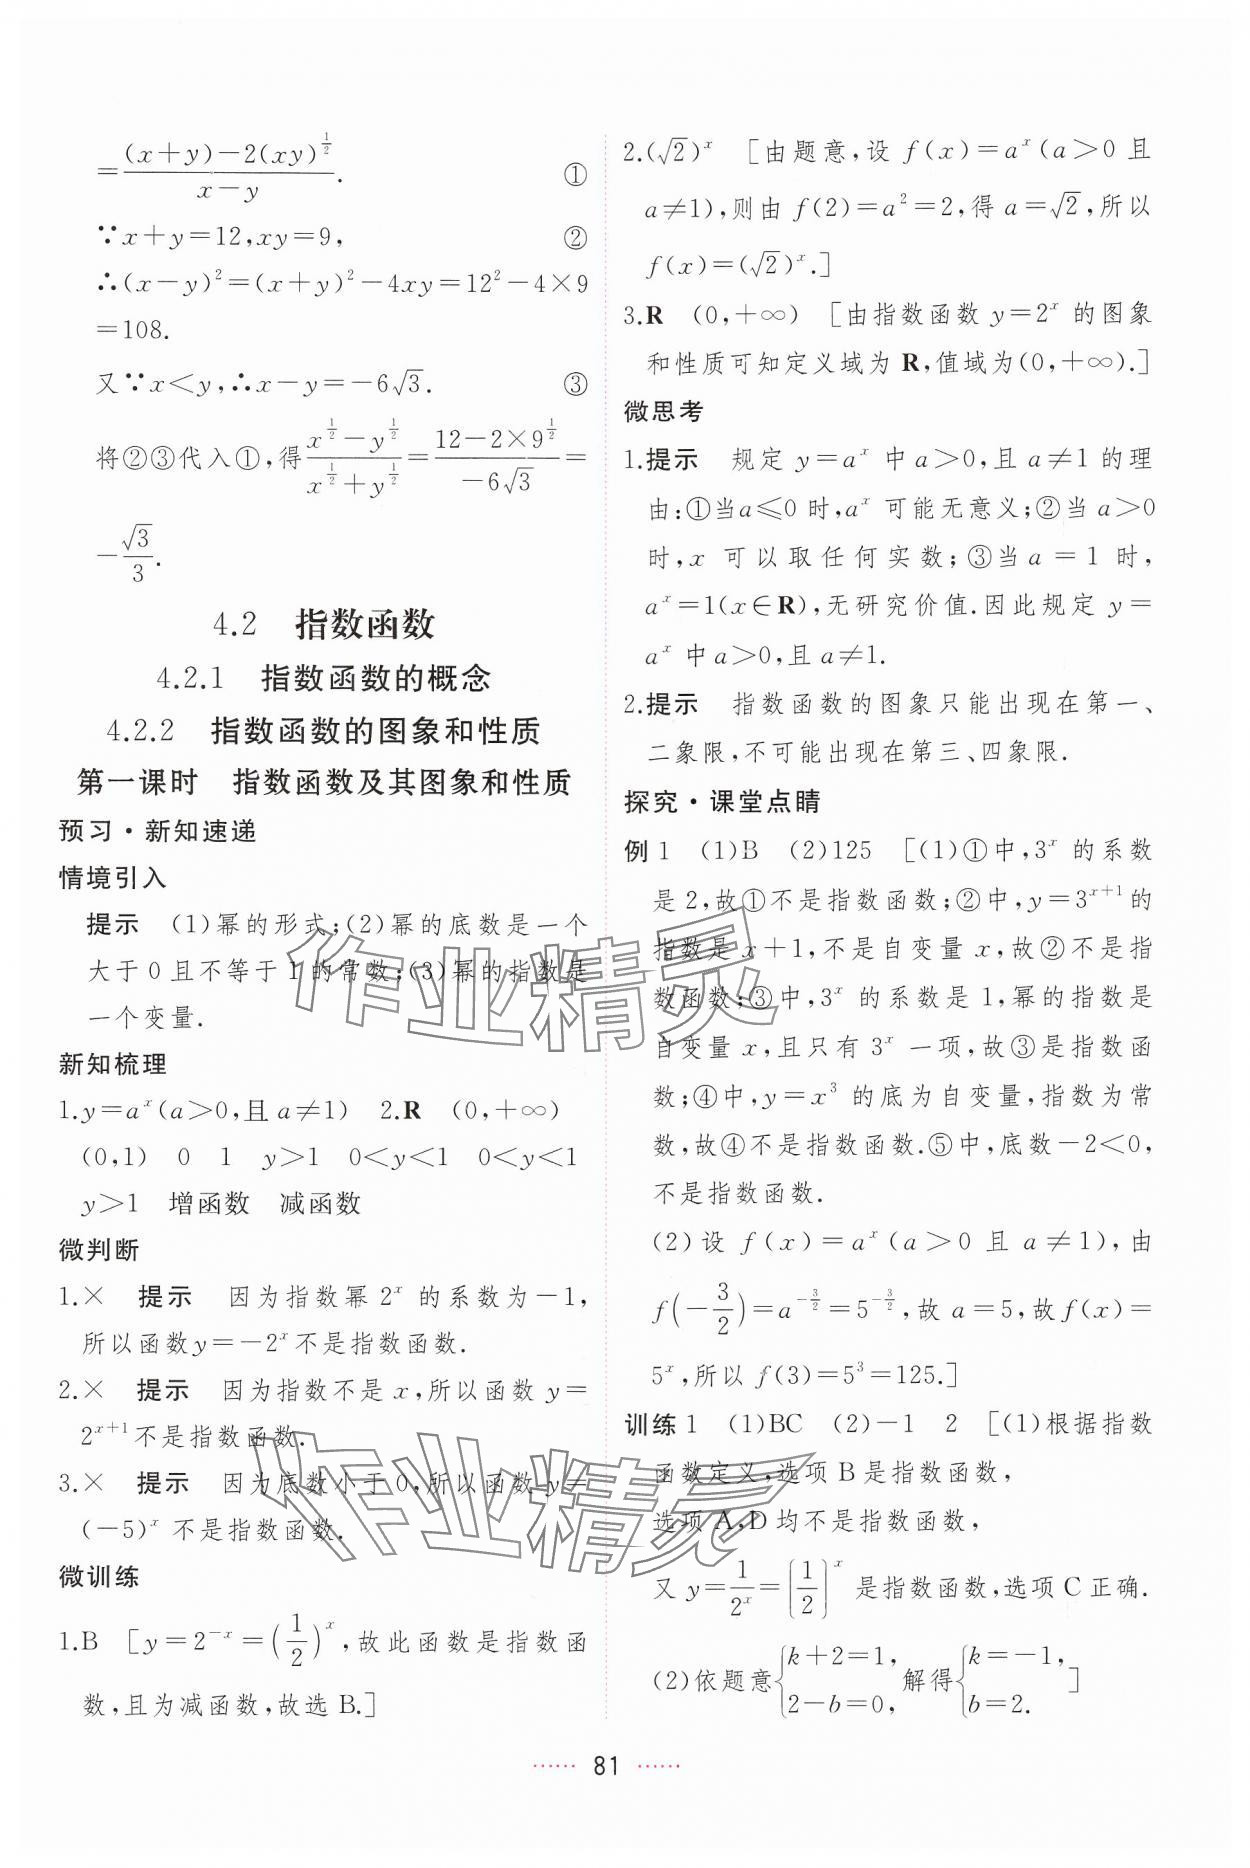 =\frac{(x+y)-2(xy)^{\frac{1}{2}}}{x-y}. ①
∵x+y=12,xy=9, ②
∴(x-y)²=(x+y)²-4xy=12²-4×9
=108.
又∵x<y,∴x-y=-6√3. ③
将②③代入①,得\frac{x^{\frac{1}{2}}-y^{\frac{1}{2}}}{x^{\frac{1}{2}}+y^{\frac{1}{2}}}=\frac{12-2×9^{\frac{1}{2}}}{-6√3}=
-\frac{√3}{3}.
4.2 指数函数
4.2.1 指数函数的概念
4.2.2 指数函数的图象和性质
第一课时 指数函数及其图象和性质
预习·新知速递
情境引入
提示 (1)幂的形式;(2)幂的底数是一个
大于0且不等于1的常数;(3)幂的指数是
一个变量.
新知梳理
1.y=a^x(a>0,且a≠1) 2.R (0,+∞)
(0,1) 0 1 y>1 0<y<1 0<y<1
y>1 增函数 减函数
微判断
1.× 提示 因为指数幂2^x的系数为-1,
所以函数y=-2^x不是指数函数.
2.× 提示 因为指数不是x,所以函数y=
2^{x+1}不是指数函数.
3.× 提示 因为底数小于0,所以函数y=
(-5)^x不是指数函数.
微训练
1.B [y=2^{-x}=(\frac{1}{2})^x,故此函数是指数函
数,且为减函数,故选B.]
2.(√2)^x [由题意,设f(x)=a^x(a>0且
a≠1),则由f(2)=a²=2,得a=√2,所以
f(x)=(√2)^x.]
3.R (0,+∞) [由指数函数y=2^x的图象
和性质可知定义域为R,值域为(0,+∞).]
微思考
1.提示 规定y=a^x中a>0,且a≠1的理
由:①当a≤0时,a^x可能无意义;②当a>0
时,x可以取任何实数;③当a=1时,
a^x=1(x∈R),无研究价值.因此规定y=
a^x中a>0,且a≠1.
2.提示 指数函数的图象只能出现在第一、
二象限,不可能出现在第三、四象限.
探究·课堂点睛
例1 (1)B (2)125 [(1)①中,3^x的系数
是2,故①不是指数函数;②中,y=3^{x+1}的
指数是x+1,不是自变量x,故②不是指
数函数;③中,3^x的系数是1,幂的指数是
自变量x,且只有3^x一项,故③是指数函
数;④中,y=x³的底为自变量,指数为常
数,故④不是指数函数.⑤中,底数-2<0,
不是指数函数.
(2)设f(x)=a^x(a>0且a≠1),由
f(-\frac{3}{2})=a^{-\frac{3}{2}}=5^{-\frac{3}{2}},故a=5,故f(x)=
5^x,所以f(3)=5³=125.]
训练1 (1)BC (2)-1 2 [(1)根据指数
函数定义,选项B是指数函数,
选项A,D均不是指数函数,
又y=\frac{1}{2^x}=(\frac{1}{2})^x是指数函数,选项C正确.
(2)依题意{k+2=1, 2-b=0, 解得{k=-1, b=2. ]
81
作业精灵
作业精灵